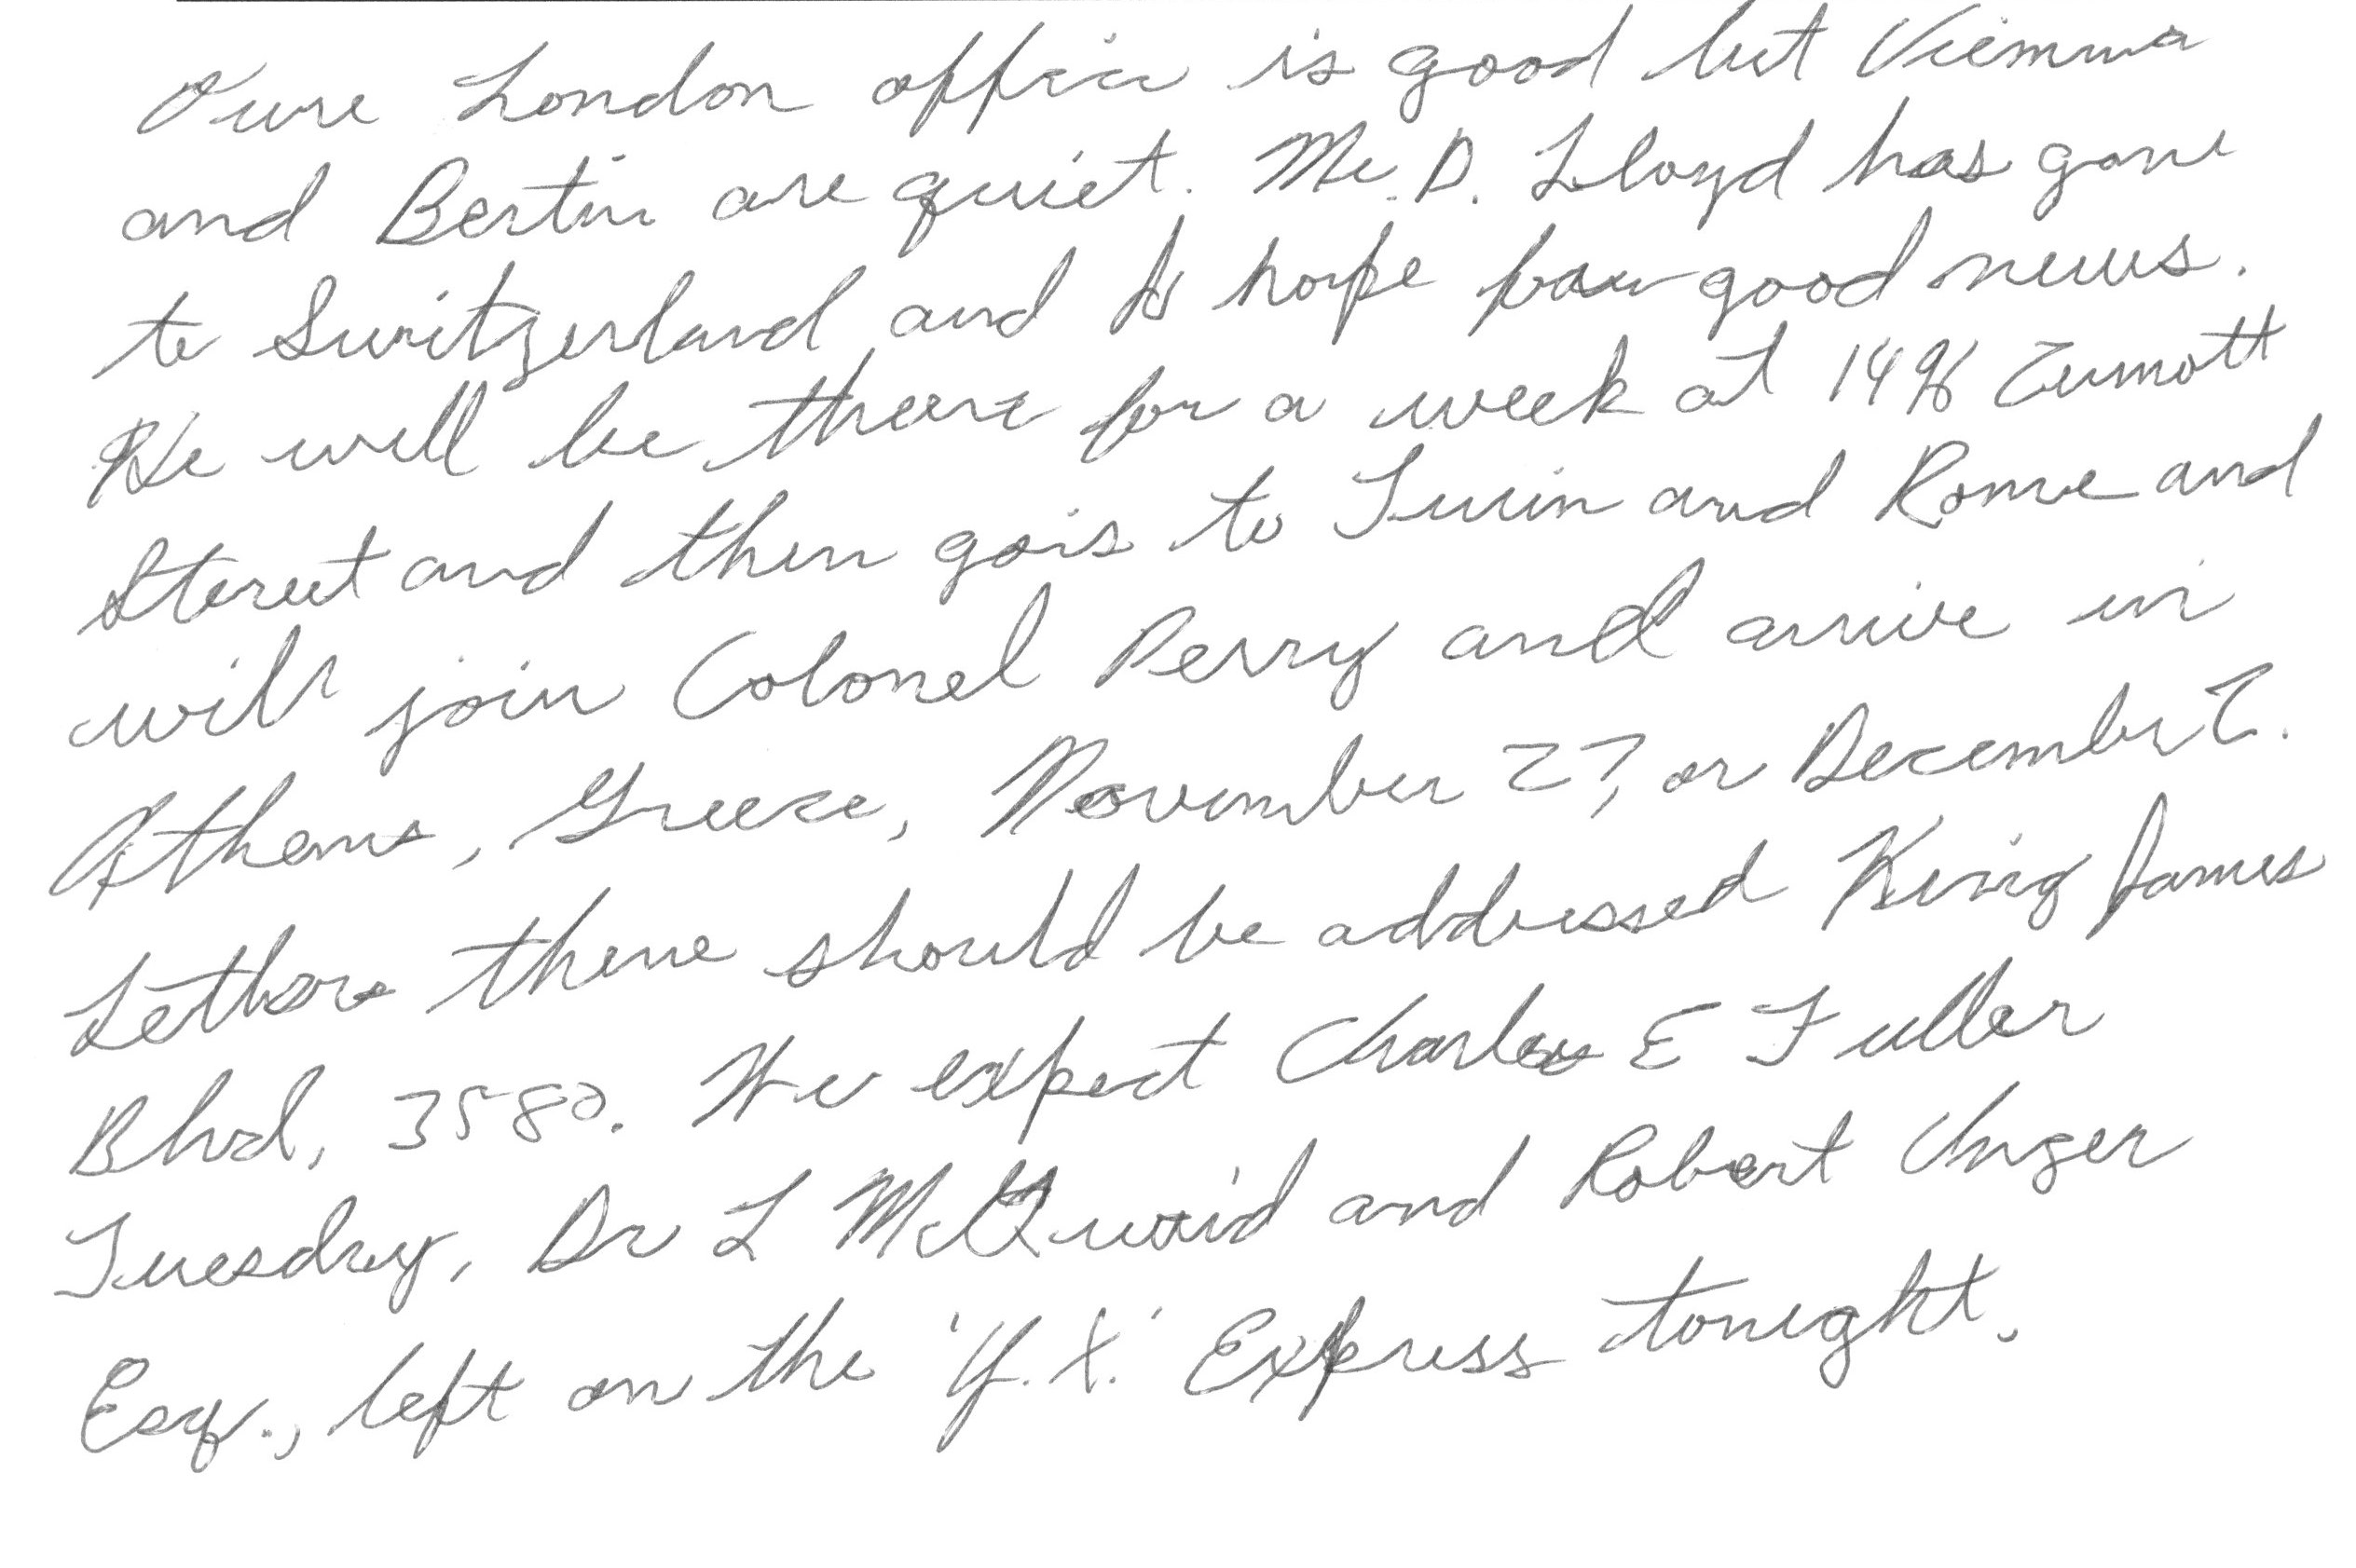 Oure London office is good but Viemma
and Bertin are quiet. Mr. D. Lloyd has gone
to Switzerland and I hope for good news.
He will be there for a week at 1496 Zumott
Stereet and then gois to Turin and Rome and
will join Colonel Perry and arrive in
Athens, Greece, November 27, or December 2.
Letters there should be addressed King James
Blvd, 3580. We expect Charles E Fuller
Tuesday, Dr L McQuaid and Robert Unger
Esq., left on the 'Y. X.' Express tonight.